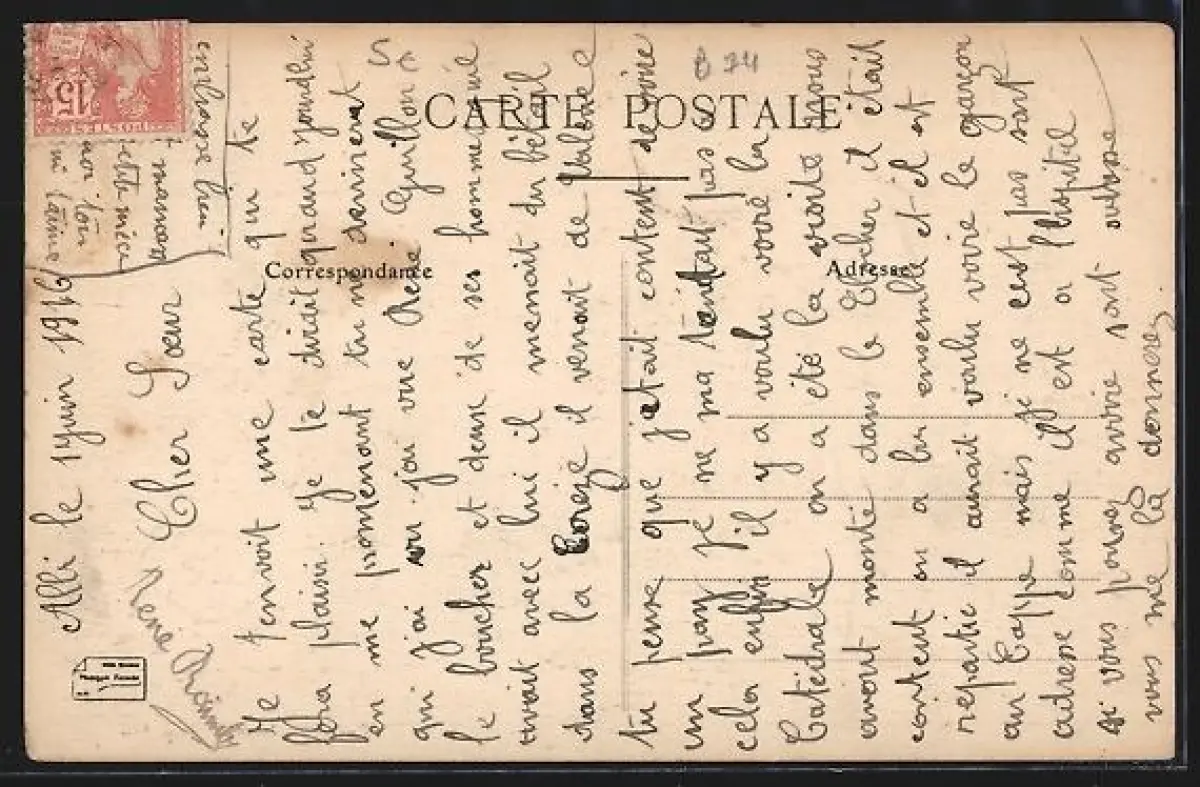 CARTE POSTALE
Correspondance
Adresse
15
POSTES
Albi le 1 juin 1916
Cher Sœur
Je t'envoit une carte qui te
fera plaisir. Je te dirait quand jourdhui
en me promenant tu ne devinerat
qui j'ai vue René Guillon
le boucher et deux de ses homme il
avait avec lui il menait du bétail
dans la Coreze il venait de
tu pense que jetait content de voire
un pays je ne ma tendait pas a
cela enfin il y a voulu voire la
Catédrale on a été la visité nous
avont monté dans le Clocher il était
content on a bu ensemble et il est
repartie il aurait voulu voire le garçon
au mais je ne c'est pas sont
adresse comme il est a l'hopital
si vous pouvez avoire sont adresse
vous me la donnerez
embrasse bien
maman
petite nièce
moi ton
qui t'aime
René